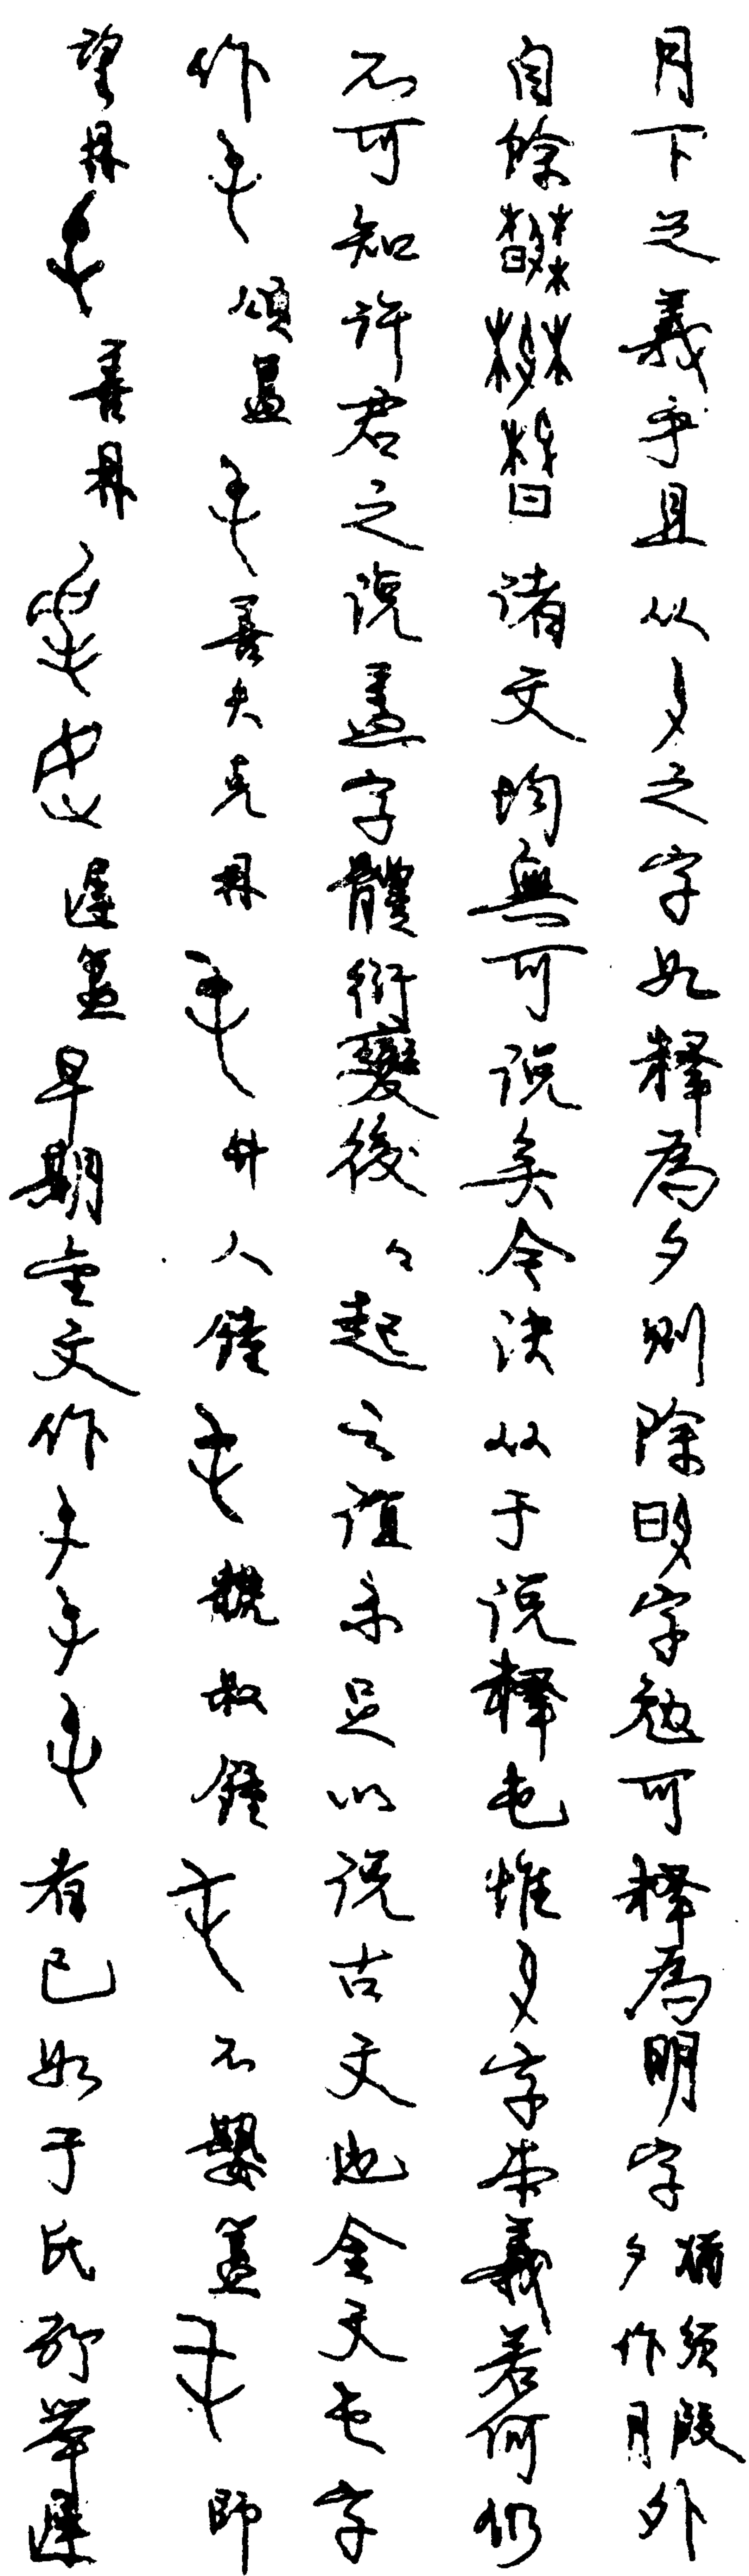 月下之義乎且从之字如釋為夕則除字勉可釋為明字猶須叚夕作月外
自餘諸文均無可說矣今決从于說釋屯惟字本義若何仍
不可知許君之說蓋字體衍變後々起之誼未足以說古文也金文屯字
作 頌壺 善夫克鼎 井人鐘 虢叔鐘 不嬰簋 師
望鼎 善鼎 遲簋 早期金文作 者已如于氏所舉遲